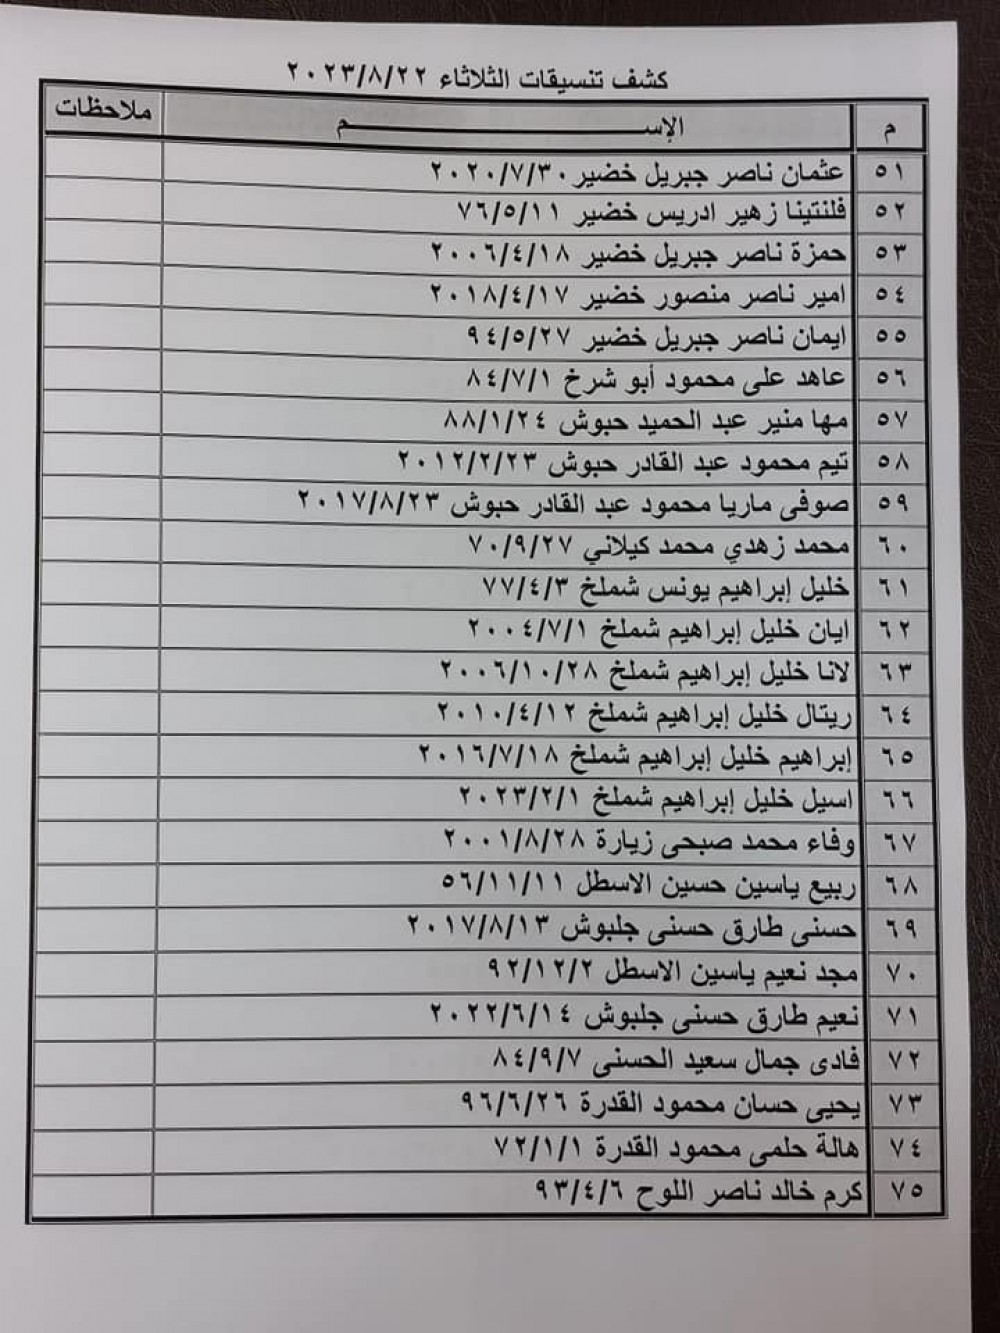 كشف تنسيقات الثلاثاء ٢٠٢٣/٨/٢٢
م الإســـــــم ملاحظات
٥١ عثمان ناصر جبريل خضير ٢٠٢٠/٧/٣٠
٥٢ فلنتينا زهير ادريس خضير ٧٦/٥/١١
٥٣ حمزة ناصر جبريل خضير ٢٠٠٦/٤/١٨
٥٤ امير ناصر منصور خضير ٢٠١٨/٤/١٧
٥٥ ايمان ناصر جبريل خضير ٩٤/٥/٢٧
٥٦ عاهد على محمود أبو شرخ ٨٤/٧/١
٥٧ مها منير عبد الحميد حبوش ٨٨/١/٢٤
٥٨ تيم محمود عبد القادر حبوش ٢٠١٢/٢/٢٣
٥٩ صوفى ماريا محمود عبد القادر حبوش ٢٠١٧/٨/٢٣
٦٠ محمد زهدي محمد كيلاني ٧٠/٩/٢٧
٦١ خليل إبراهيم يونس شملخ ٧٧/٤/٣
٦٢ ايان خليل إبراهيم شملخ ٢٠٠٤/٧/١
٦٣ لانا خليل إبراهيم شملخ ٢٠٠٦/١٠/٢٨
٦٤ ريتال خليل إبراهيم شملخ ٢٠١٠/٤/١٢
٦٥ إبراهيم خليل إبراهيم شملخ ٢٠١٦/٧/١٨
٦٦ اسيل خليل إبراهيم شملخ ٢٠٢٣/٢/١
٦٧ وفاء محمد صبحى زيارة ٢٠٠١/٨/٢٨
٦٨ ربيع ياسين حسين الاسطل ٥٦/١١/١١
٦٩ حسنى طارق حسنى جلبوش ٢٠١٧/٨/١٣
٧٠ مجد نعيم ياسين الاسطل ٩٢/١٢/٢
٧١ نعيم طارق حسنى جلبوش ٢٠٢٢/٦/١٤
٧٢ فادى جمال سعيد الحسنى ٨٤/٩/٧
٧٣ يحيى حسان محمود القدرة ٩٦/٦/٢٦
٧٤ هالة حلمى محمود القدرة ٧٢/١/١
٧٥ كرم خالد ناصر اللوح ٩٣/٤/٦